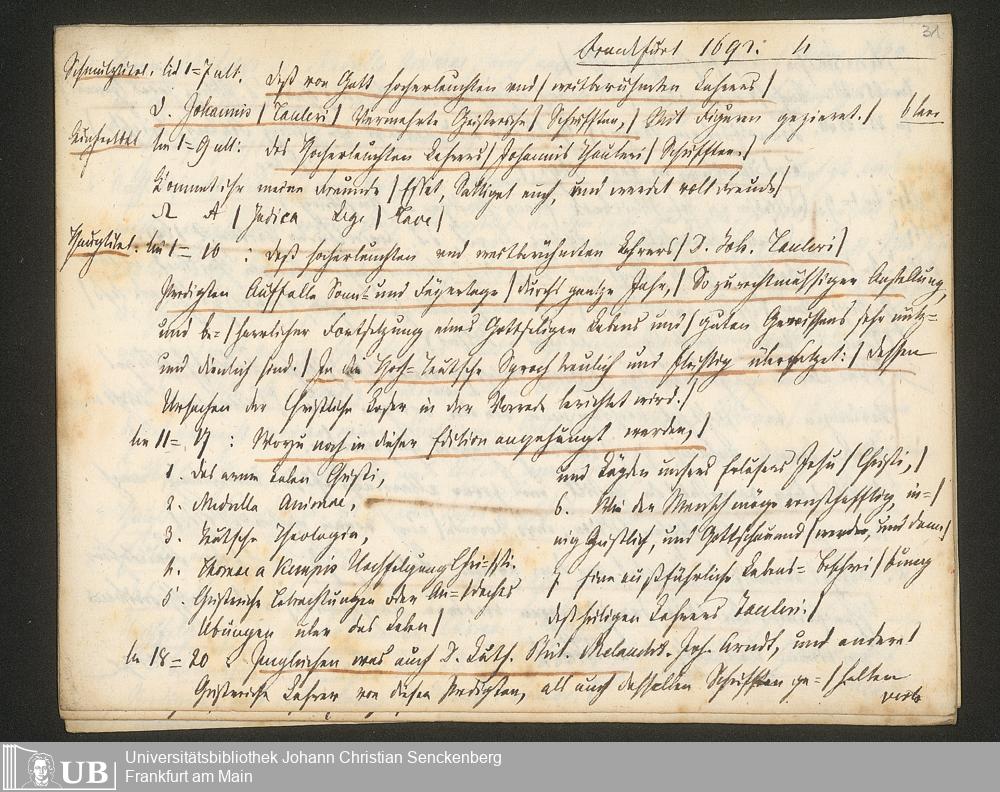 31
Frankfurt 1692. 4
Schmutztitel. bl 1=7 alt. Deß von Gott hocherleuchten und / weitberühmten Lehrers /
D. Johannis / Tauleri / Vermehrte Geistreiche / Schrifften, / Mit Figuren gezieret. / b leer
Kupfertitel bl 1=9 alt: Des Hocherleuchten Lehrers / Johannis Thauleri / Schrifften. /
Kommet ihr meine Freunde / Esset, Sättiget euch, und werdet voll Freude /
A / Judica Lege / Tace /
Haupttitel. bl 1=10 : Deß hocherleuchten und weitberühmten Lehrers / D. Joh. Tauleri /
Predigten Auff alle Sonn- und Feyertage / durchs gantze Jahr, / So zu rechtmässiger Anstellung,
und be- / harrlicher Fortsetzung eines Gottseligen Lebens und / guten Gewissens sehr nutz-
und dienlich sind. / In die Hoch-Teutsche Sprach treulich und fleissig übersetzet: / Dessen
Ursachen der Christliche Leser in der Vorrede berichtet wird. /
bl 11=17 : Worzu noch in dieser Edition angehengt werden, /
1. Das arme Leben Christi,
2. Medulla Animae,
3. Teutsche Theologia,
4. Thomae a Kempis Nachfolgung Christi.
5. Geistreiche Betrachtungen oder An- / dächtige
Übungen über das Leben /
und Leyden unsers Erlösers Jesu / Christi, /
6. Wie der Mensch möge ernsthafftig, in- /
nig Geistlich, und Gottschauend / werden, und dann /
7 Eine außführliche Lebens-Beschrei / bung
deß heiligen Lehrers Tauleri. /
bl 18=20 : Ingleichen was auch D. Luth. Phil. Melancht. Joh. Arndt, und andere /
Geistreiche Lehrer von diesen Predigten, als auch desselben Schrifften ge- / halten
Universitätsbibliothek Johann Christian Senckenberg
Frankfurt am Main
UB